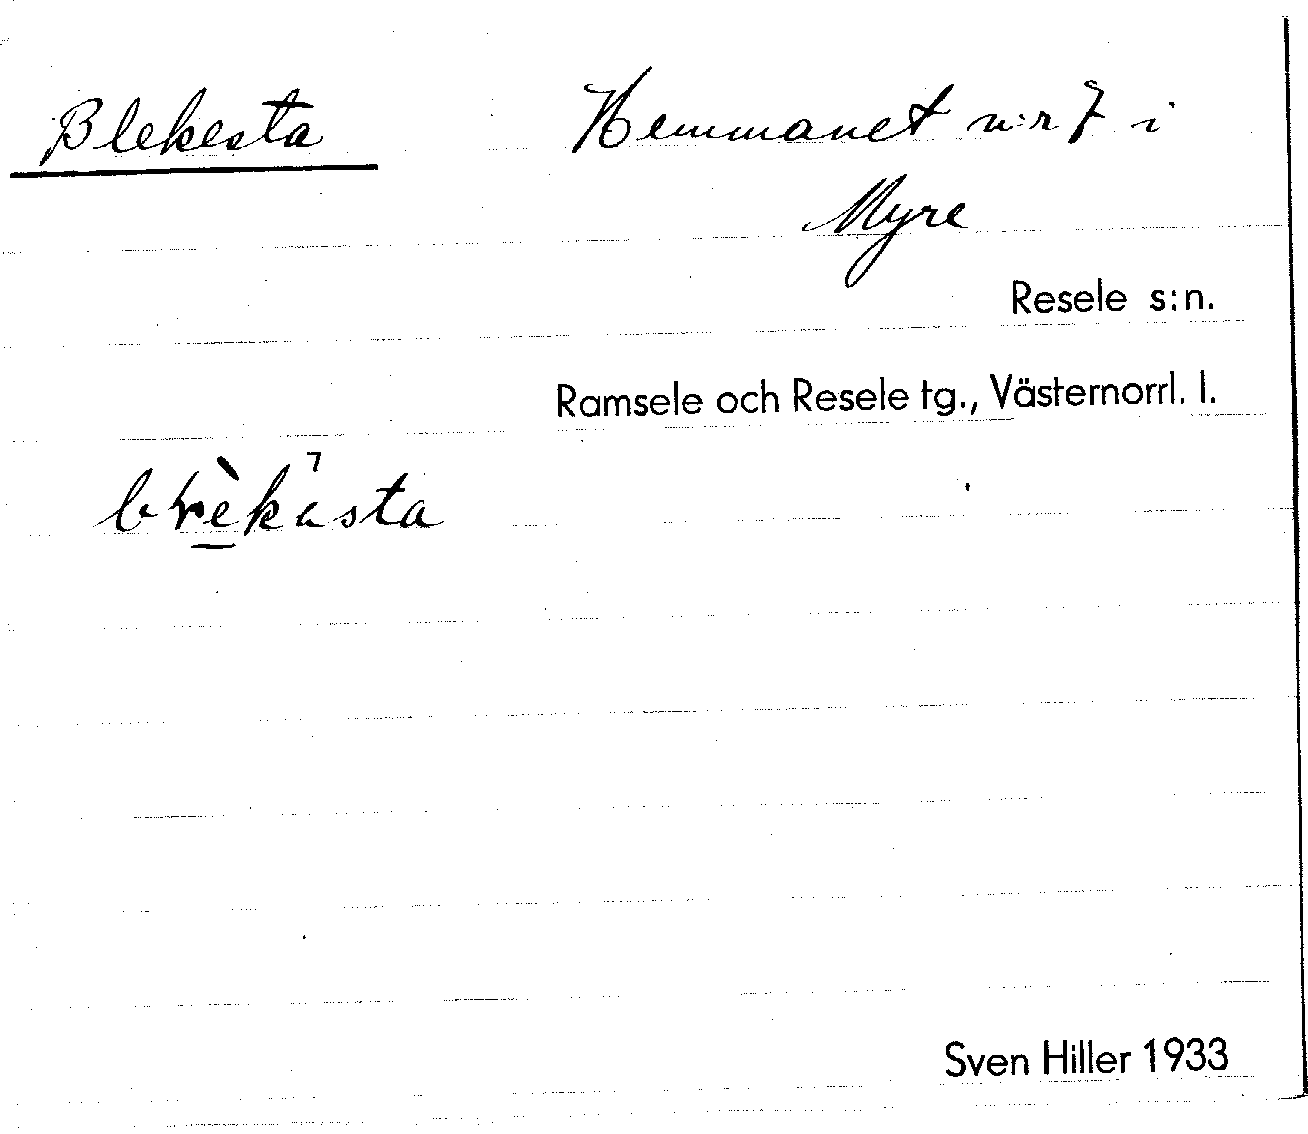 Blekesta Hemmanet n:r 7 i
Myre
Resele s:n.
Ramsele och Resele tg., Västernorrl. l.
Sven Hiller 1933